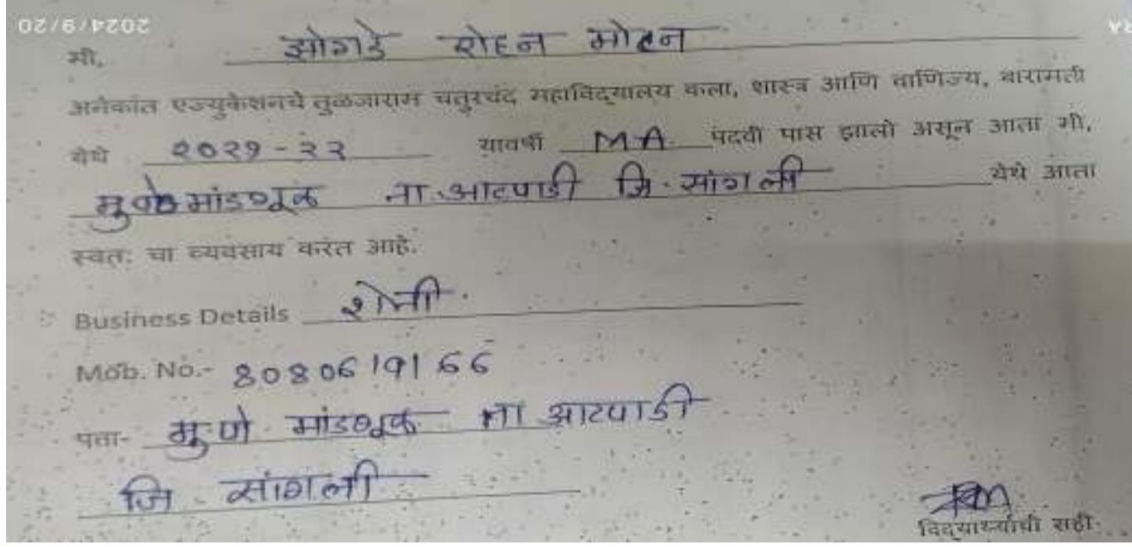 2024/9/20
मी, झोगडे रोहन मोहन
अनेकांत एज्युकेशनचे तुळजाराम चतुरचंद महाविद्यालय कला, शास्त्र आणि वाणिज्य, बारामती
येथे २०२१-२२ यावर्षी MA पदवी पास झालो असून आता मी,
मु.पो मांडवूळ ता.आटपाडी जि.सांगली येथे आता
स्वतः चा व्यवसाय करत आहे.
Business Details शेती.
Mob. No.- 8080619166
पता- मु.पो मांडवूळ ता आटपाडी
जि सांगली
विद्यार्थ्याची सही